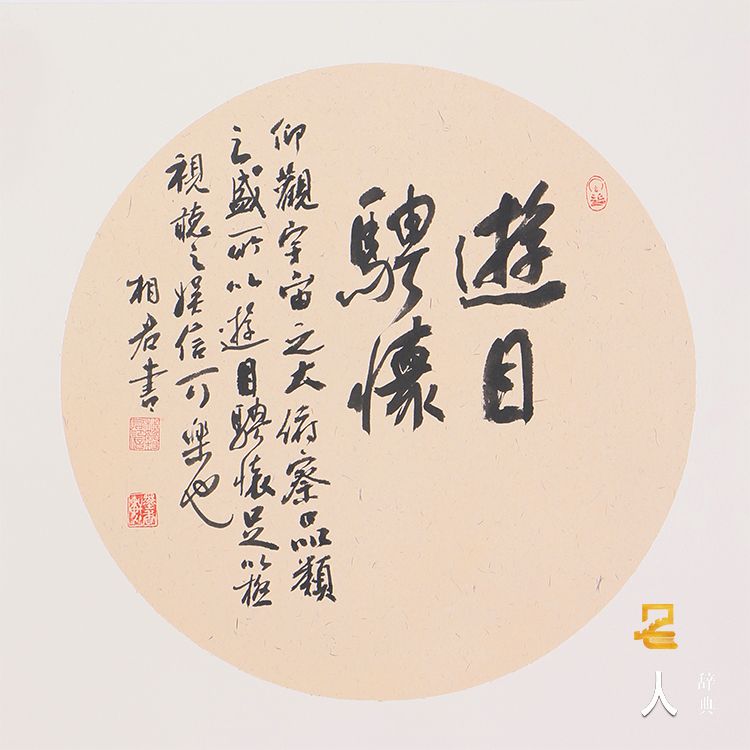 遊目
騁懷
仰觀宇宙之大俯察品類
之盛所以遊目騁懷足以極
視聽之娛信可樂也
相君書
名人
辞典